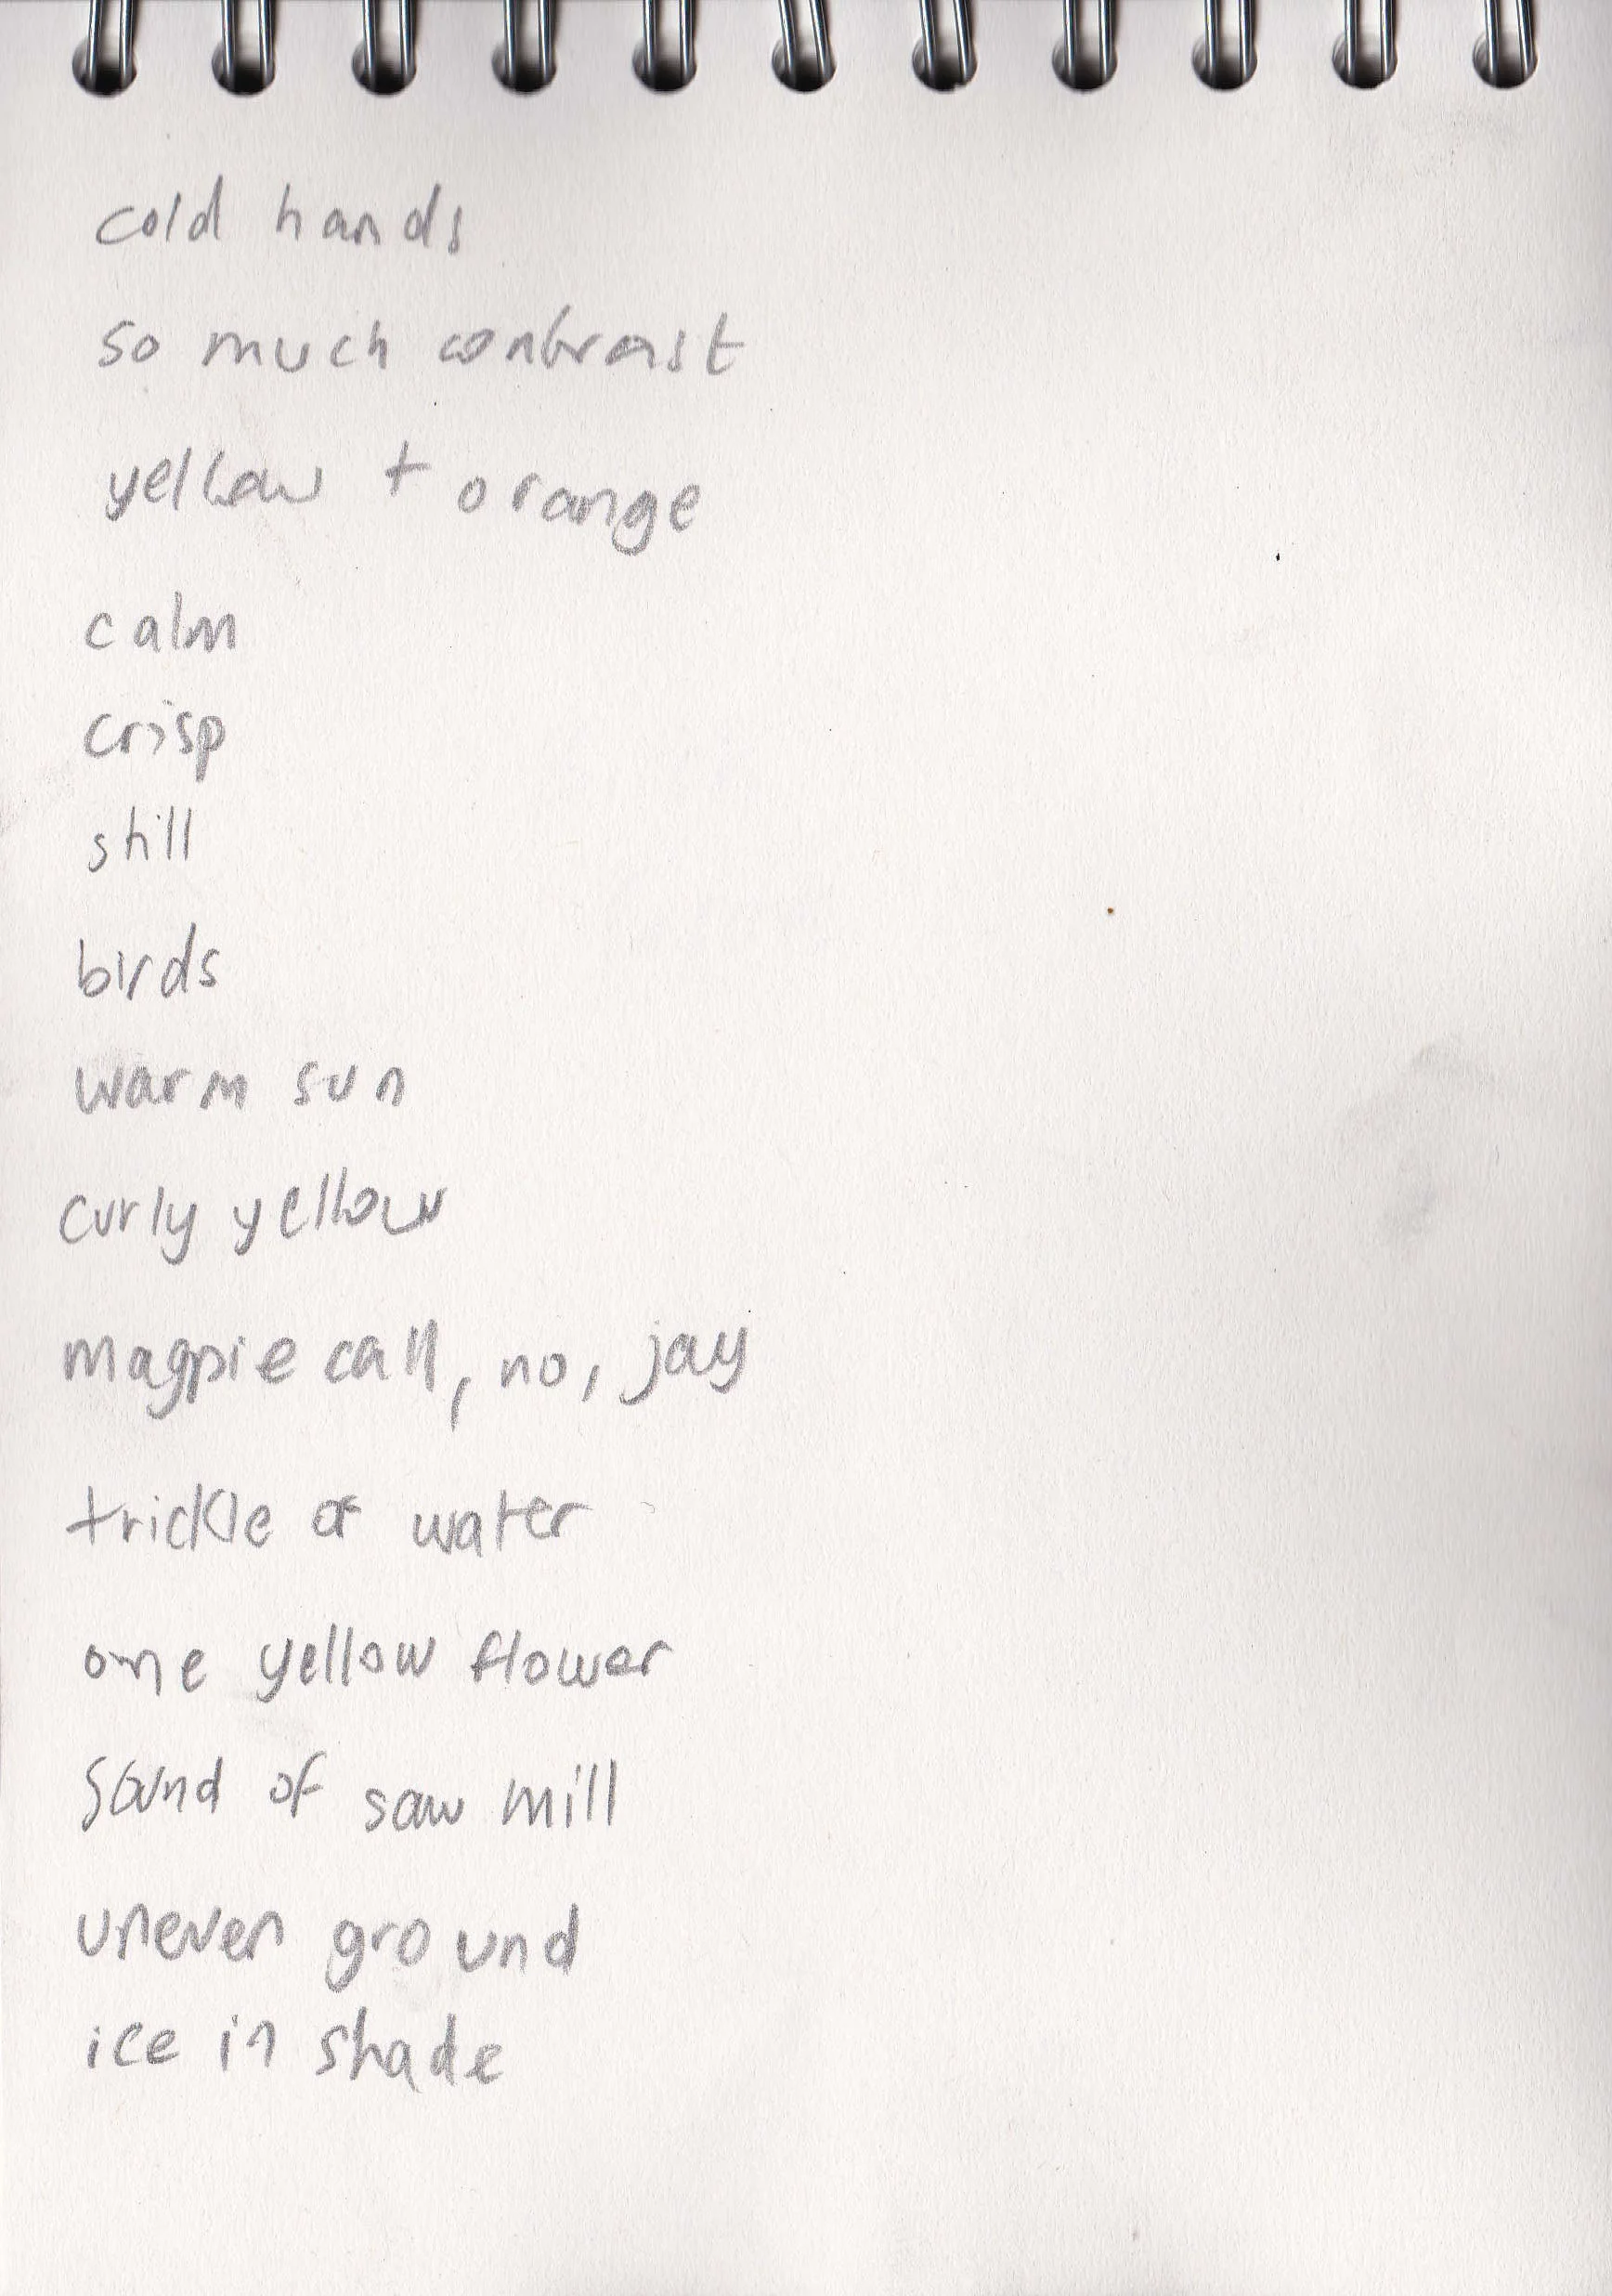 cold hands
so much contrast
yellow + orange
calm
crisp
still
birds
warm sun
curly yellow
magpie call, no, jay
trickle of water
one yellow flower
sound of saw mill
uneven ground
ice in shade